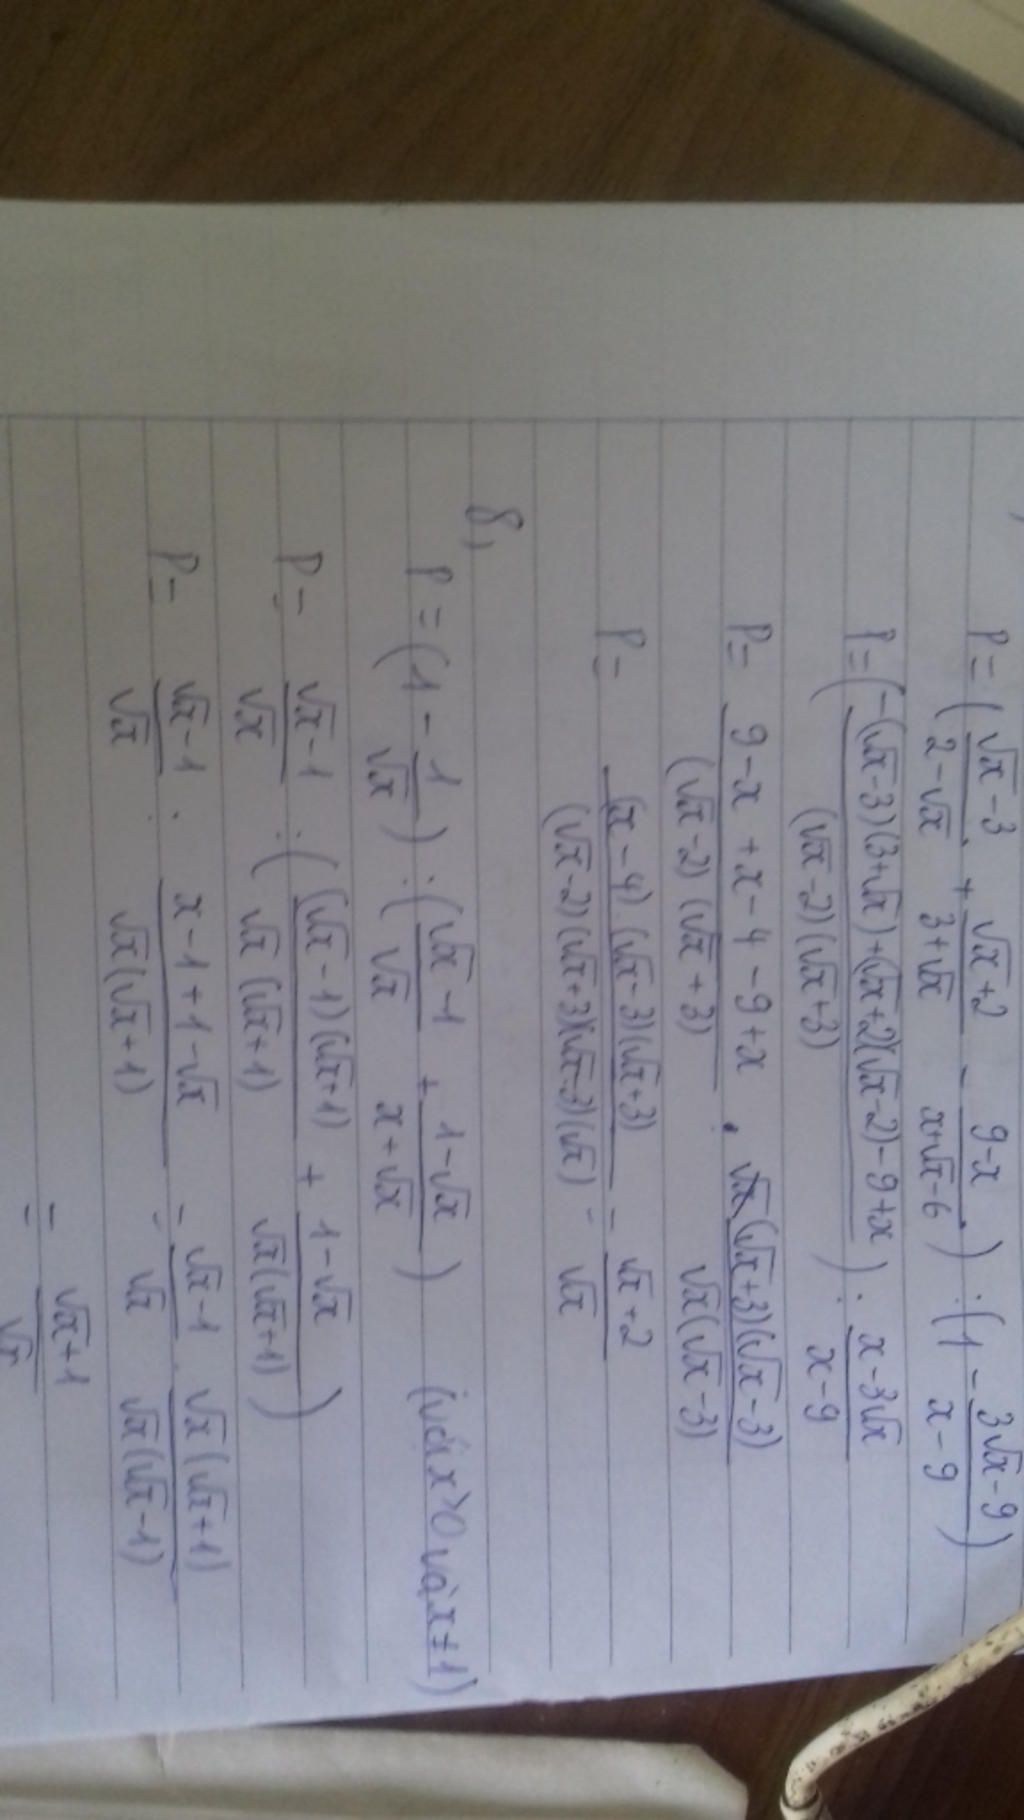 P = ( (√x-3)/(2-√x) + (√x+2)/(3+√x) - (9-x)/(x+√x-6) ) : (1 - (3√x-9)/(x-9))
P = ( (-(√x-3)(3+√x)+(√x+2)(√x-2)-9+x)/((√x-2)(√x+3)) ) : (x-3√x)/(x-9)
P = (9-x+x-4-9+x)/((√x-2)(√x+3)) . ((√x+3)(√x-3))/(√x(√x-3))
P = ((x-4).(√x-3)(√x+3))/((√x-2)(√x+3)(√x-3)(√x)) = (√x+2)/√x
8,
P = (1 - 1/√x) : ( (√x-1)/√x + (1-√x)/(x+√x) ) (với x>0 và x≠1)
P = (√x-1)/√x : ( ((√x-1)(√x+1))/(√x(√x+1)) + (1-√x)/(√x(√x+1)) )
P = (√x-1)/√x : (x-1+1-√x)/(√x(√x+1)) = (√x-1)/√x . (√x(√x+1))/(√x(√x-1))
= (√x+1)/√x